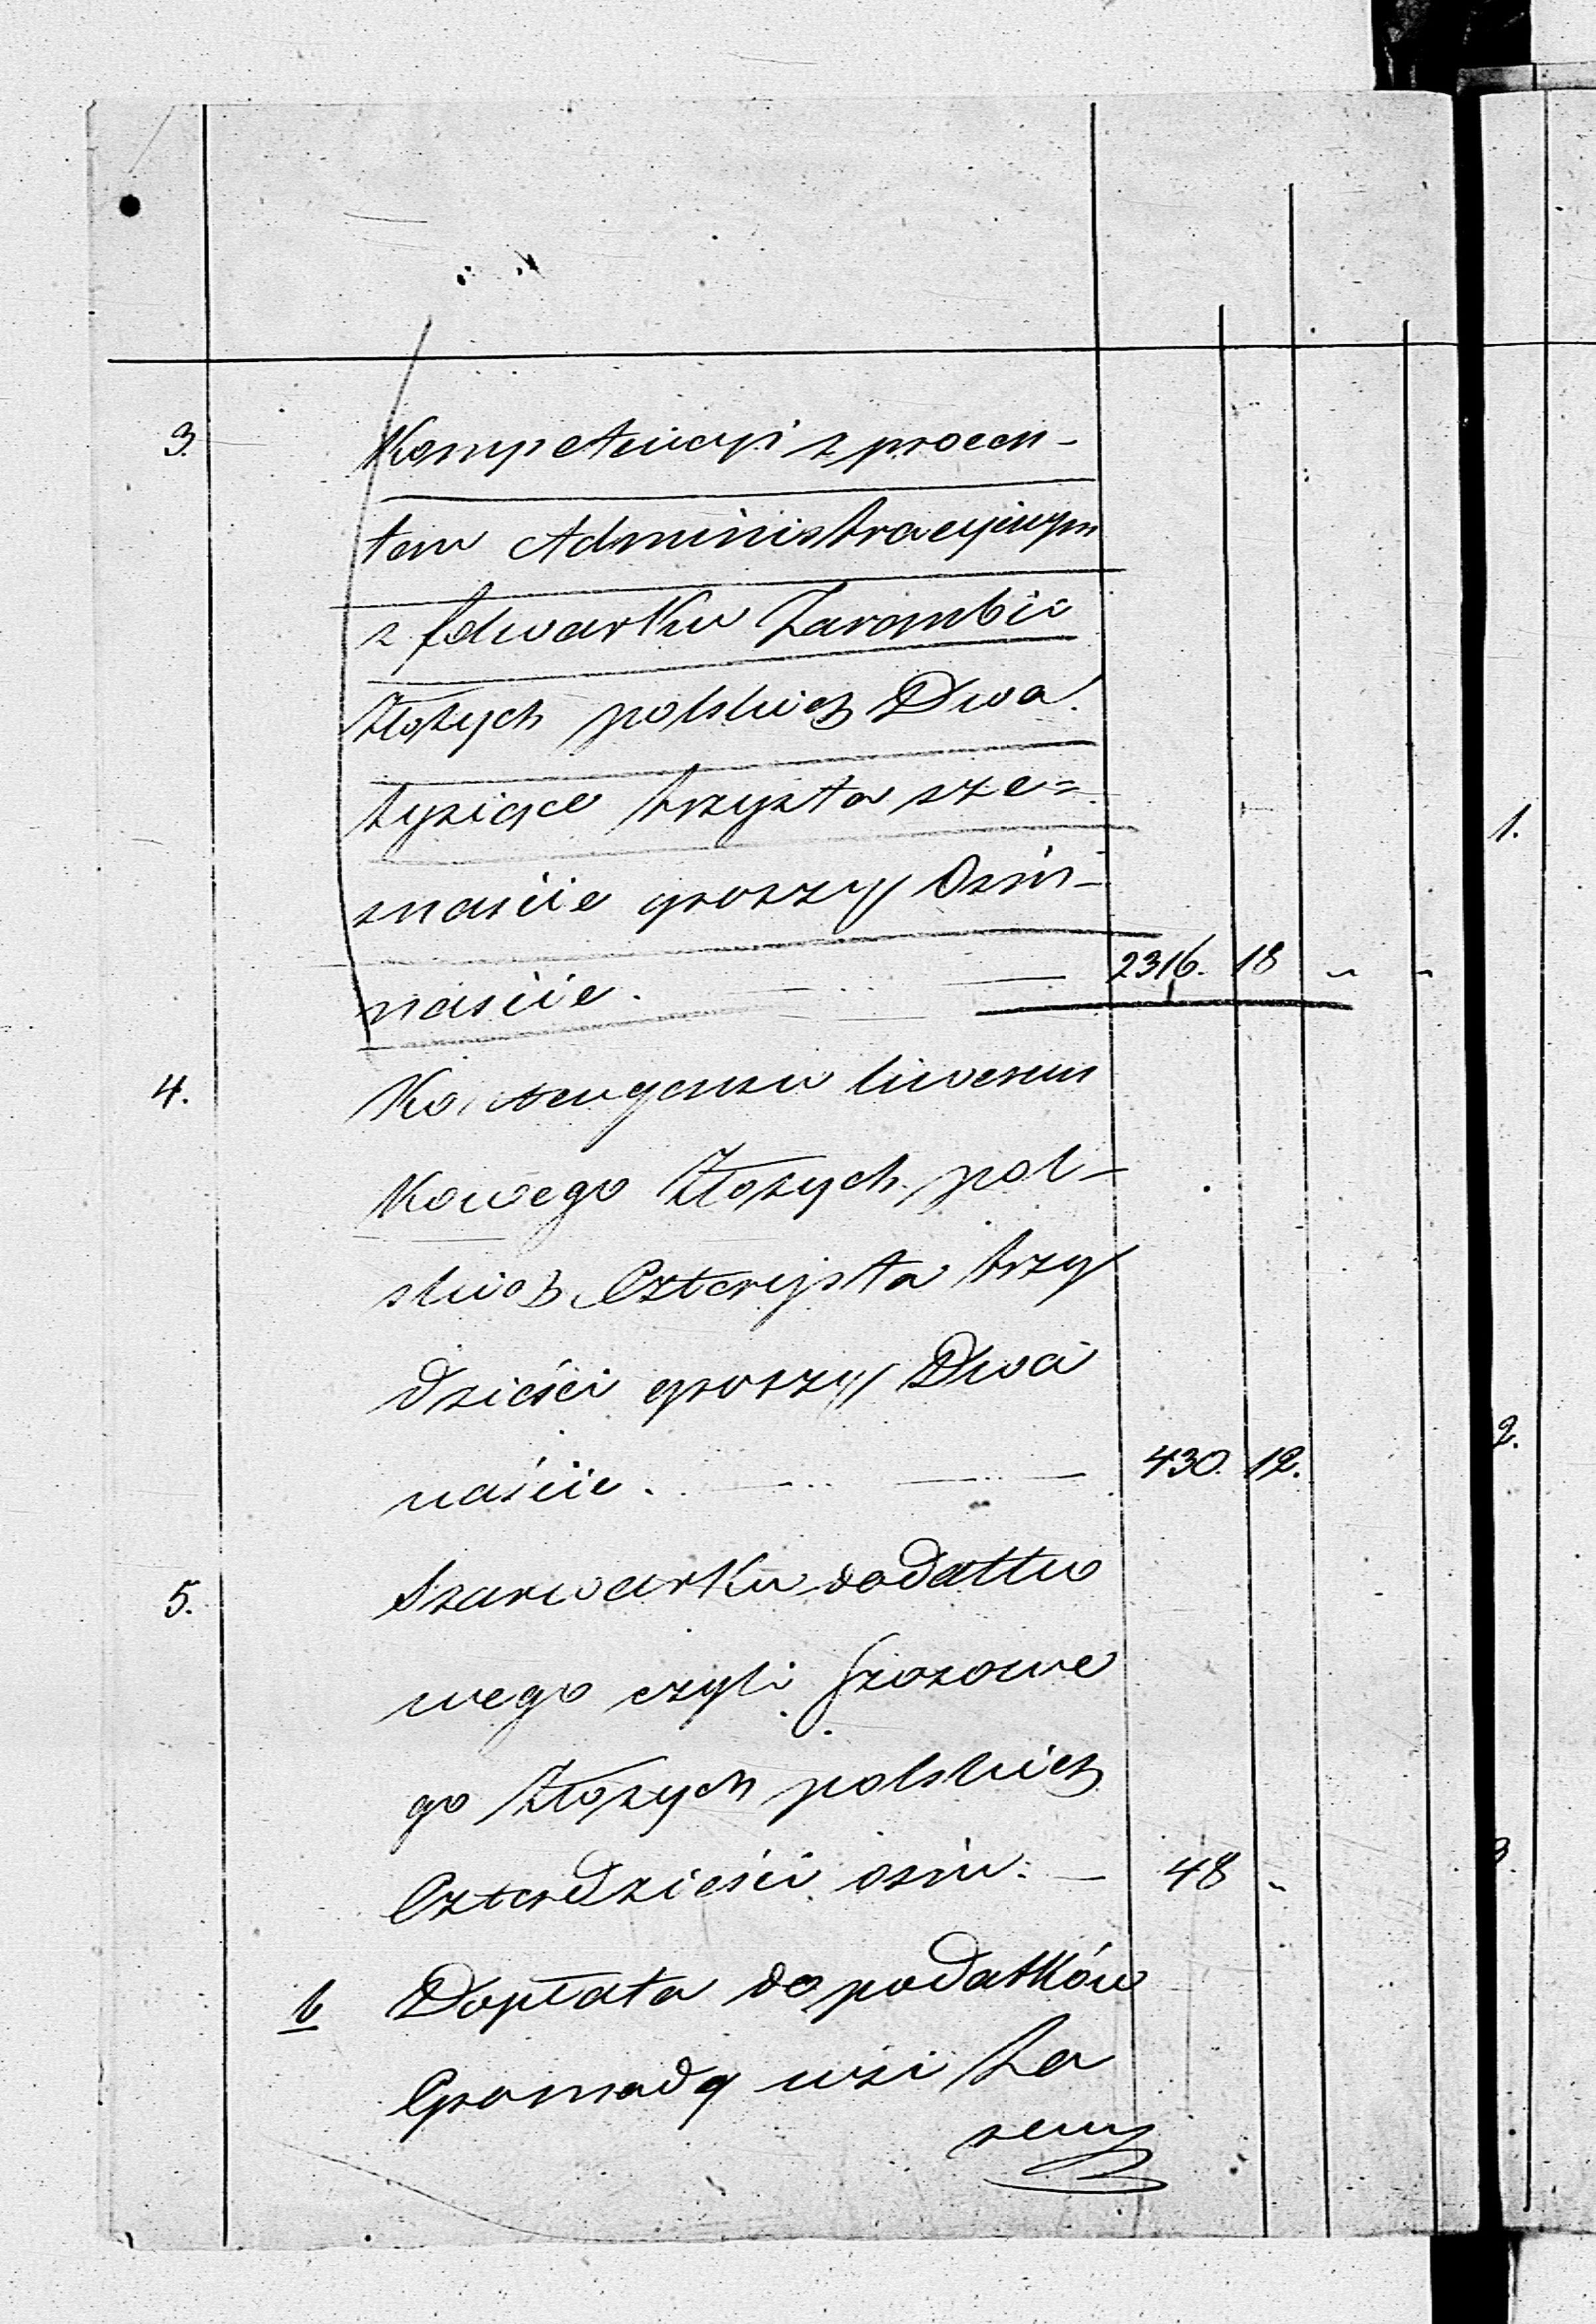 3. Kompetencyi z procen-
tem Administracyjnym
z folwarku Zarembie
Złotych polskich Dwa
tysiące trzysta sze=
snaście groszy Ośm-
naście. 2316. 18 " "
4. Kontengensu liwerun
kowego Złotych pol-
skich Czterysta trzy
dzieści groszy Dwa
naście. 430. 12.
5. Szarwarku dodatko
wego czyli szosowe
go Złotych polskich
Czterdzieści ośm: — 48 "
b Dopłata do podatków
Gromadą wsi Za
1.
2.
3.